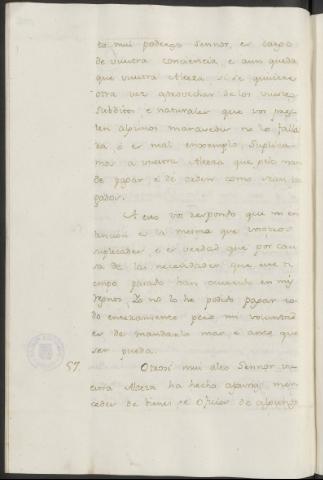 to mui poderoso Sennor, es cargo
de vuestra conciencia, e aun queda
que vuestra Alteza si se quisiere
otra vez aprovechar de los vuestros
subditos, e naturales que vos pres-
ten algunos maravedis no lo falla
rá, e es mal enxemplo, suplica
mos a vuestra Alteza que pelo man
de pagar, e dé orden como sean pa
gados.
A esto vos respondo que mi en
tencion e la mesma que vosotros
suplicades, e es verdad que por cau
sa de las necesidades que este ti
empo pasado han ocurrido en mis
regnos, Yo no lo he podido pagar to
do enteramente pero mi voluntad
es de mandarlo mas, e antes que
ser pueda.
57. Otrosi mui alto Sennor vu
estra Alteza ha hecha algunas mer
cedes de bienes, e Oficios de algunos